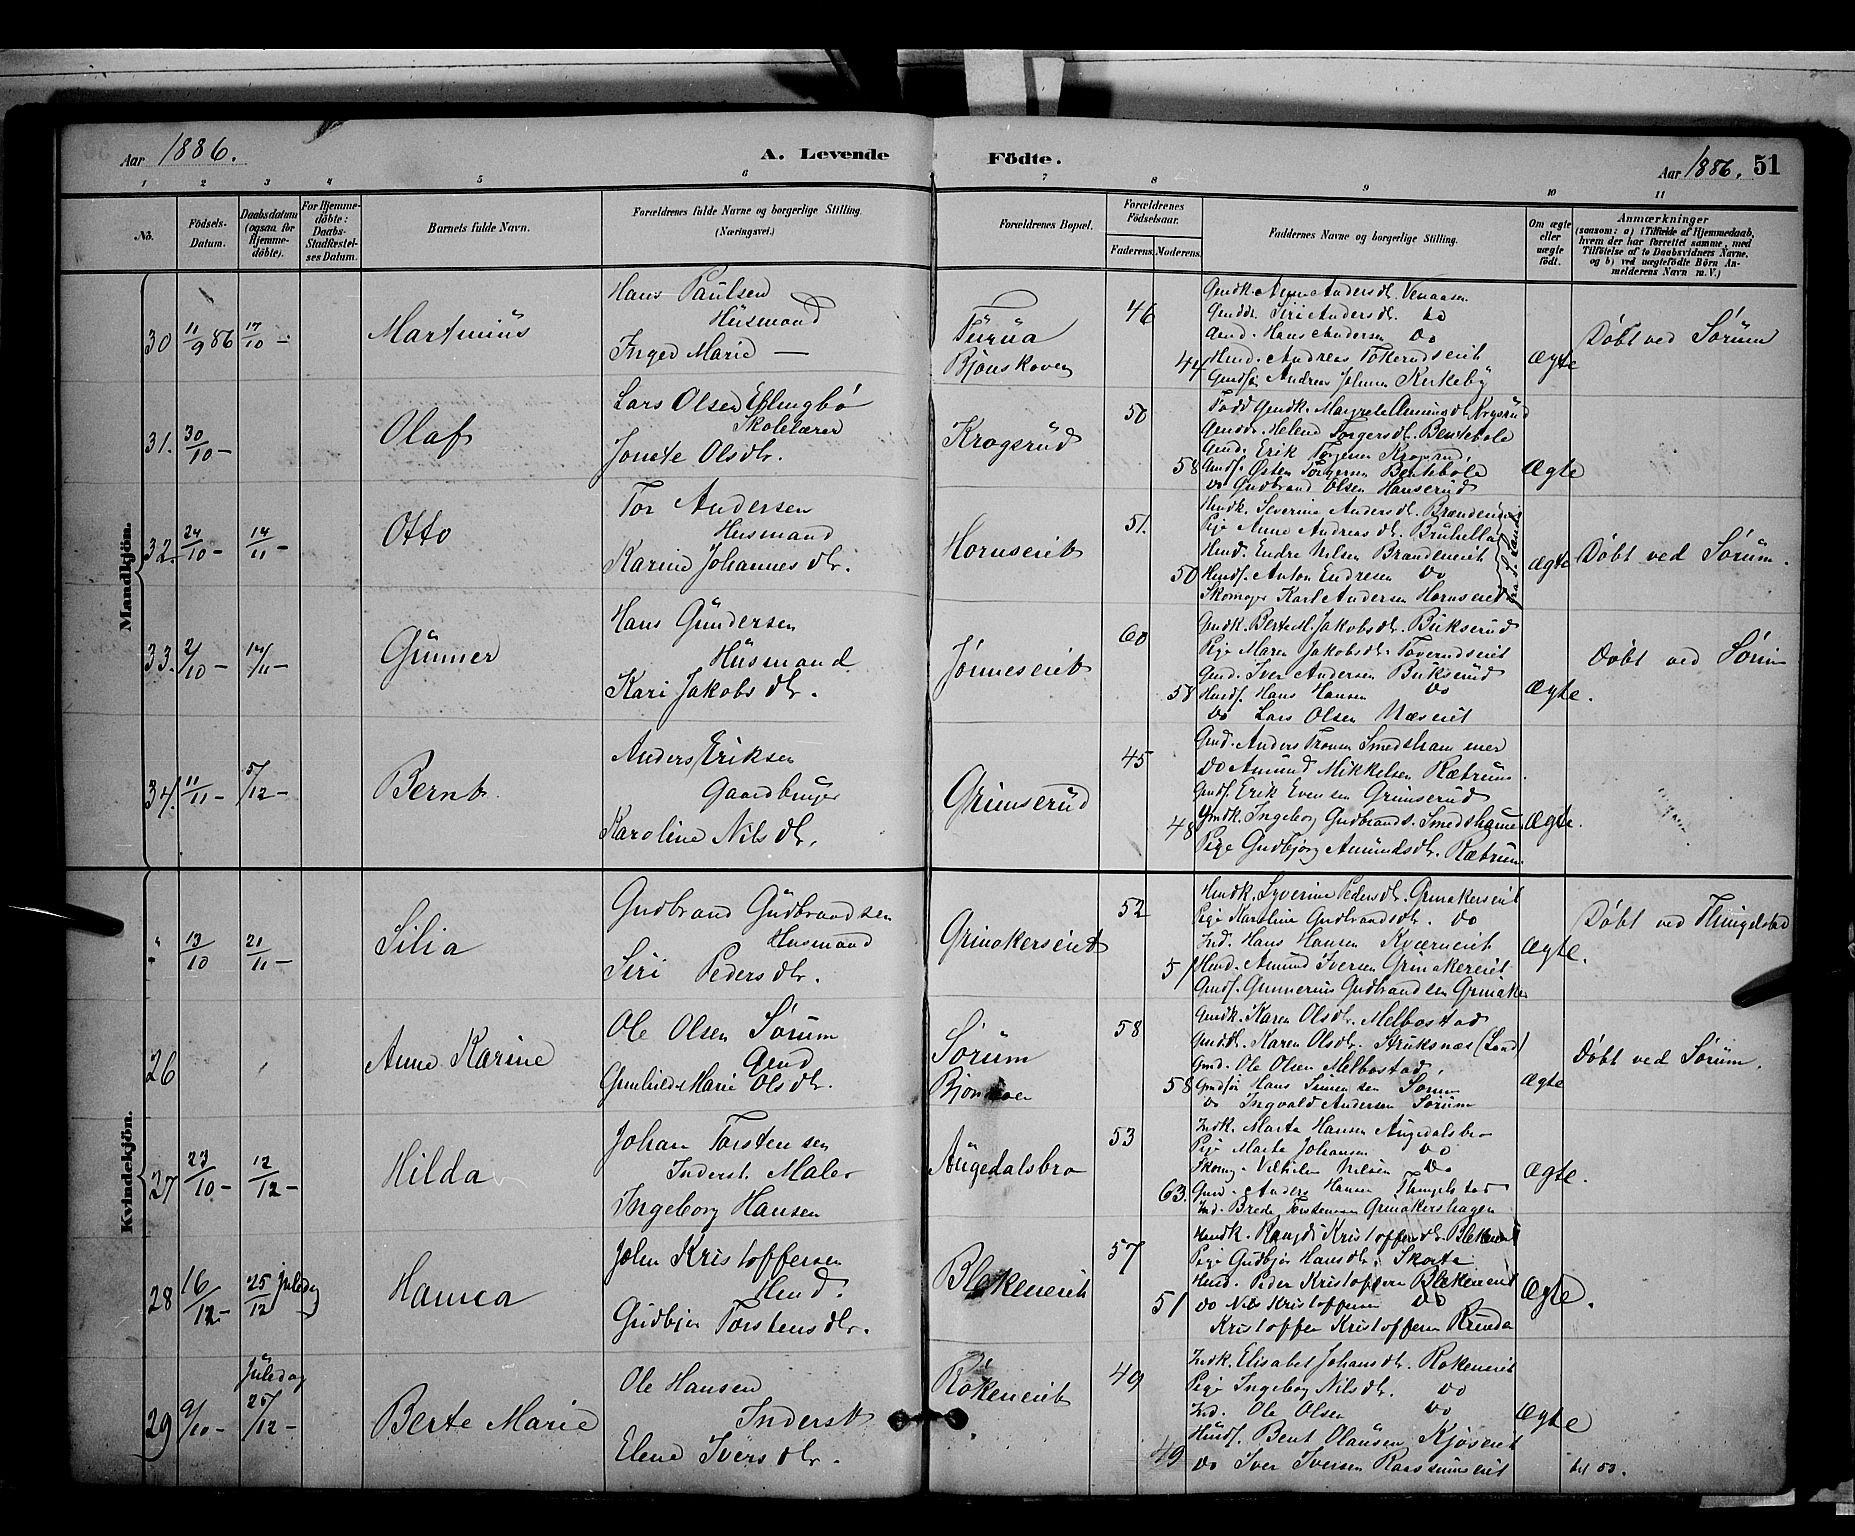 Aar 1886. A. Levende Fødte. Aar 1886. 51
1 2 3 4 5 6 7 8 9 10 11
No.
Födsels-
Datum.
Daabsdatum
(ogsaa for
Hjemme-
döbte).
For Hjemme-
döbte:
Daabs-
Stadfæstel-
ses Datum.
Barnets fulde Navn.
Forældrenes fulde Navne og borgerlige Stilling.
(Næringsvei.)
Forældrenes Bopæl.
Forældrenes
Födselsaar.
Faderens. Moderens.
Faddernes Navne og borgerlige Stilling.
Om ægte
eller
uægte
født.
Anmærkninger
(saasom: a) i Tilfælde af Hjemmedaab,
hvem der har forrettet samme, med
Tilföielse af to Daabsvidners Navne,
og b) ved uægtefödte Börn An-
melderens Navn m. V.)
Mandkjön.
30 11/9 86 17/10 – Martinius
Hans Paulsen
Husmand
Inger Marie —
Bjønskoven
46
44
Gmdk. Anne Andersdt.
Siri Andersdt. do
Gmd. Hans Andersen do
Gmdsøn Andreas Johnsen Kirkeby
Ægte
Døbt ved Sørum
31. 30/10 – Olaf
Lars Olsen Ellingbø
Skolelærer
Jonette Olsdtr.
Krogsrud
50
58
Helene Torgersdt. Bentebøle
Gmd. Erik Torgersen Krogsrud
Gmdf. Østen Torgersen Bentebøle
do Gudbrand Olsen Hanserud
Ægte
32. 24/10 – 14/11 – Otto
Tor Andersen
Husmand
Karine Johannesdtr.
Hornseiet
51.
50
Hmdk. Severine Andersdt.
Pige Anne Andreasdt.
Hmd. Endre Nilsen Brandeneiet
Hmdf. Anton Endresen do
Skomager Karl Andersen Hornseiet
Ægte
Døbt ved Sørum.
33. 2/10 – 14/11 – Gunner
Hans Gundersen
Husmand
Kari Jakobsdtr.
Jønneseiet
60
58
Gmdk. Berte M. Jakobsdt. Bukserud
Pige Maren Jakobsdt.
Gmd. Iver Andersen Bukserud
Hmdf. Hans Hansen do
do Lars Olsen Næseiet
Ægte.
Døbt ved Sørum
34. 11/11 – 5/12 – Bernt
Anders Eriksen
Gaardbruger
Karoline Nilsdtr.
Grimserud
45
48
Gmd. Anders Tronsen Smedshammer
do Amund Mikkelsen Rætrum.
Gmdf. Erik Evensen Grimserud
Gmdk. Ingeborg Gudbrands. Smedshamer
Pige Gudbjørg Amundsdtr. Rætrum
Ægte.
Kvindekjön.
" 13/10 21/11 – Silia
Gudbrand Gudbrandsen
Husmand
Siri Pedersdtr.
Grinakerseiet
52
51
Hmdk. Syverine Pedersdtr. Grinakerseiet
Pige Karoline Gudbrandsdtr. do
Ind. Hans Hansen Kværneiet
Hmd. Amund Iversen Grinakereiet
Gmdf. Gunnerius Gudbrandsen Grinaker
Ægte.
Døbt ved Thingelstad
26 Anne Karine
Ole Olsen Sørum
Gmd
Gunhild Marie Olsdtr.
Sørum
58
58
Gmdk. Karen Olsdtr. Melbostad
Gmdd. Karen Olsdtr. (Land)
Gmd. Ole Olsen Melbostad
Gmdsøn Hans Simensen Sørum
do Ingvald Andersen Sørum
Ægte
Døbt ved Sørum.
27 23/10 – 12/12 – Hilda
Johan Torstensen
Inderst. Maler
Ingeborg Hansen
Augedalsbro
53
63.
Indk. Marta Hansen Augedalsbro
Pige Marte Johansen do
Skomg. Vilhelm Nilsen do
Gmd. Anders Hansen Thingelstad
Ind. Brede Torstensen Grinakershagen
Ægte.
28 16/12 – 25/12 Juledag Hanna
John Kristoffersen
Hmd.
Gudbjør Torstensdtr.
Blekeneiet
57
51
Hmdk. Rangdi Kristoffersdtr. Blekeneiet
Pige Gudbjør Hansdtr.
Hmd. Peder Kristoffersen Blekeneiet
do Nils Kristoffersen do
Kristoffer Kristoffersen
Ægte.
29 9/10 – Juledag 25/12 – Berte Marie
Ole Hansen
Inderst
Elene Iversdtr.
Røkeneiet
49
49
Indk. Elisabet Johansdtr. Røkeneiet
Pige Ingeborg Nilsdtr. do
Ind. Ole Olsen do
Husf. Bent Olausen Kjøseiet
do Iver Iversen
Ægte